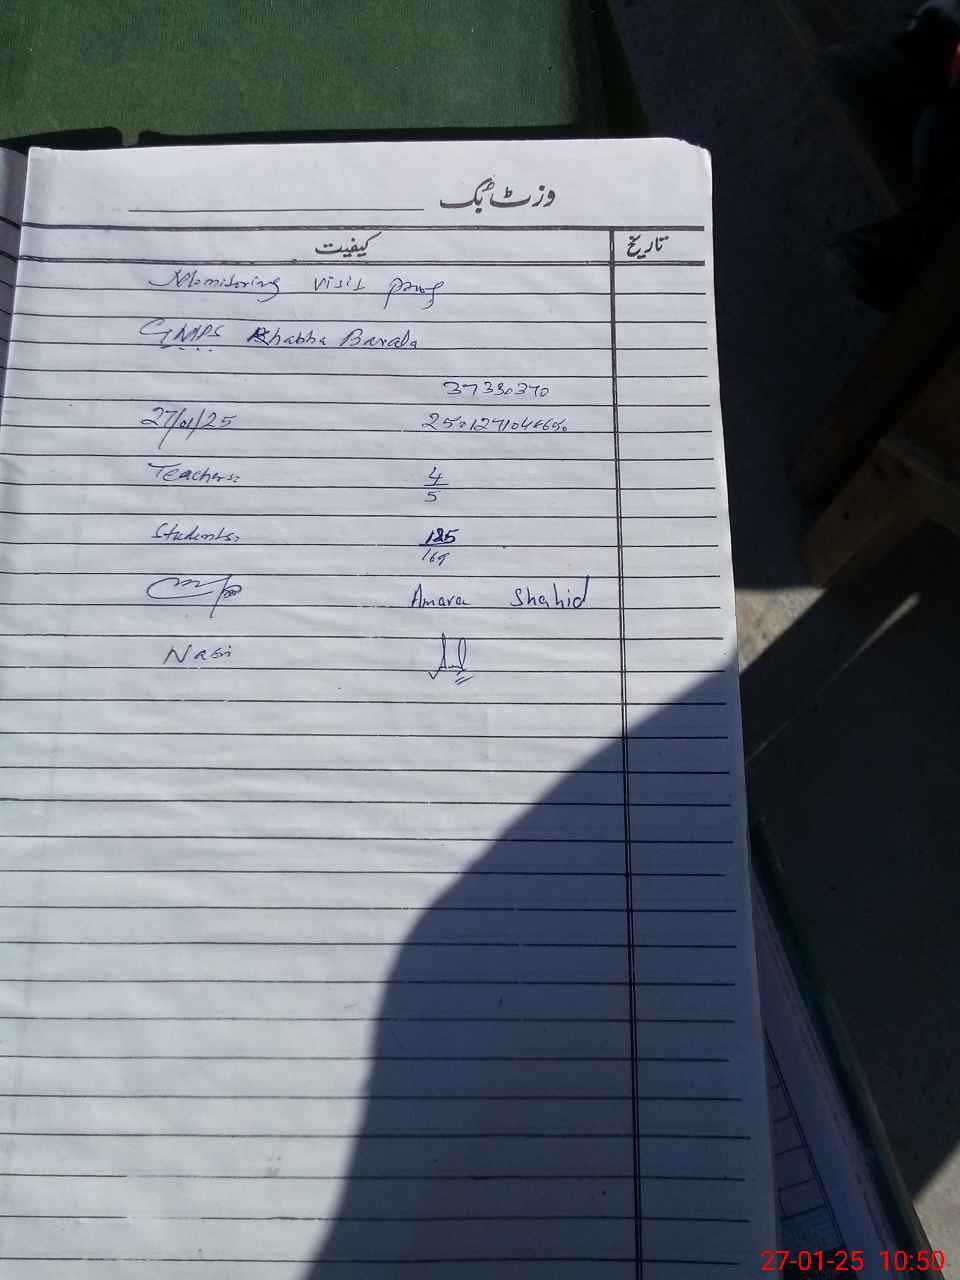 وزٹ بُک
کیفیت تاریخ
Monitoring visit proof
GMPS Khabha Barala
37330370
27/01/25
Teachers: 4/5
Students: 125/169
Amara Shahid
Nasir
27-01-25 10:50